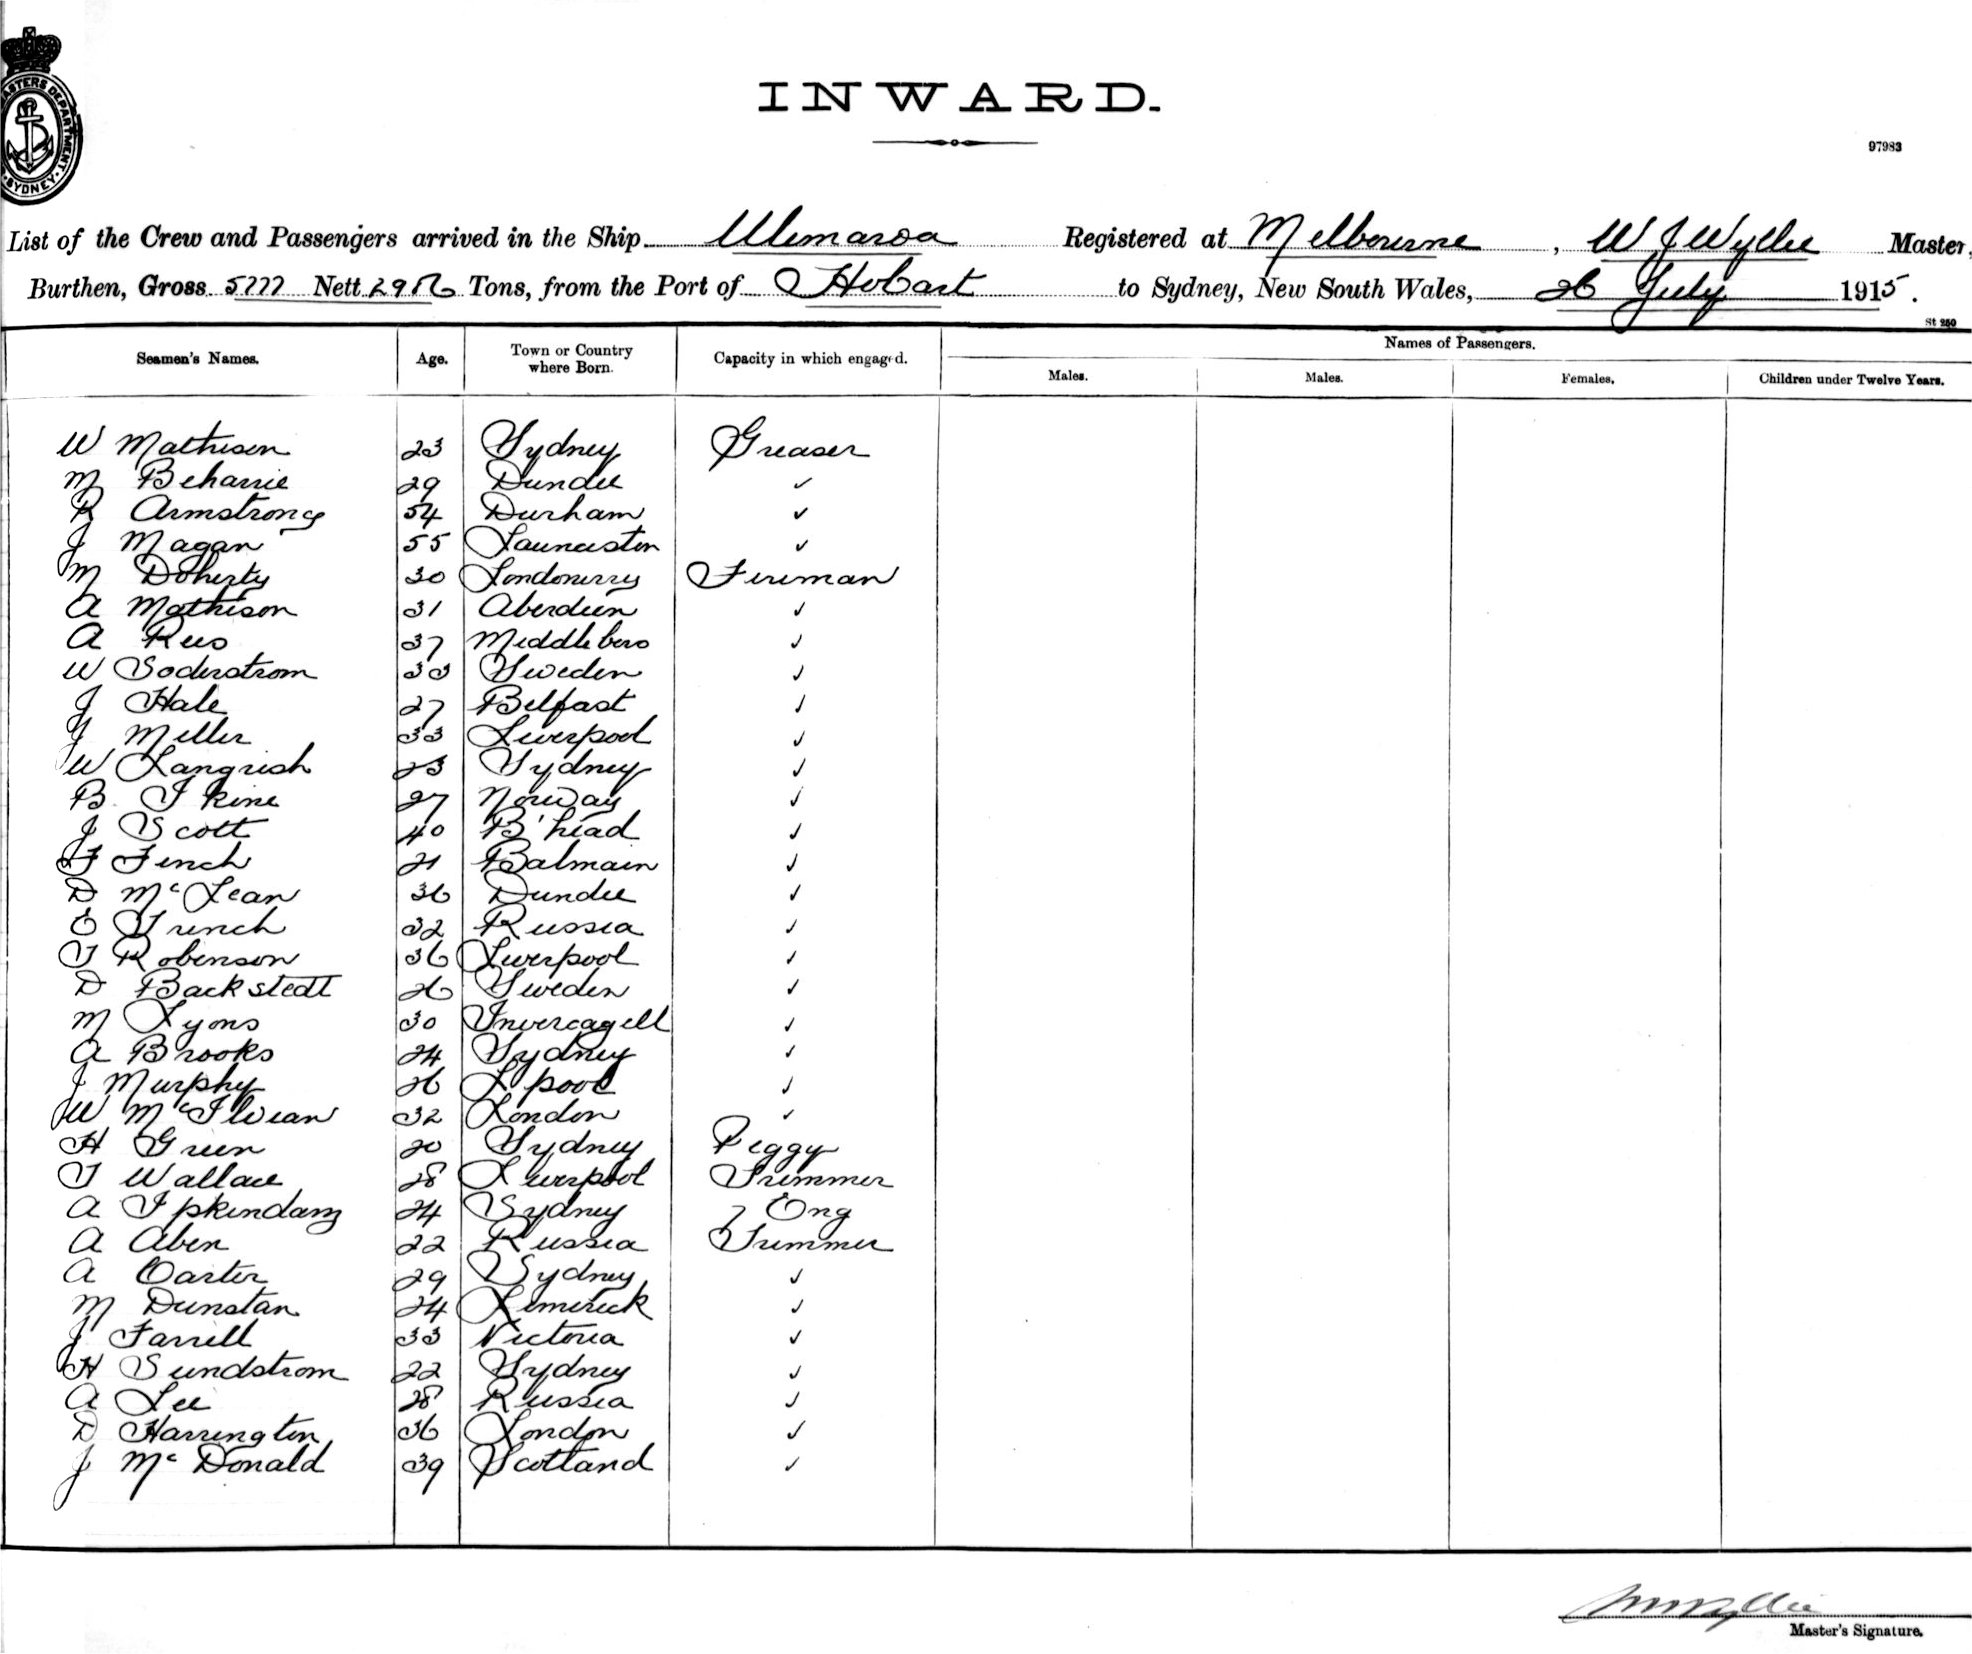 MASTERS DEPARTMENT
SYDNEY
INWARD.
97983
List of the Crew and Passengers arrived in the Ship Ulimaroa Registered at Melbourne, W J Wyllie Master,
Burthen, Gross 5777 Nett Tons, from the Port of Hobart to Sydney, New South Wales, 26 July 1915.
St 250
Seamen's Names. Age. Town or Country where Born. Capacity in which engaged. Names of Passengers.
Males. Males. Females. Children under Twelve Years.
W Mathison 23 Sydney Greaser
M Beharrie 29 Dundee ✓
R Armstrong 54 Durham ✓
J Magan 55 Launceston ✓
M Doherty 30 Londonerry Fireman
A Mathison 31 Aberdeen ✓
A Rees 37 Middleboro ✓
W Soderstrom 33 Sweden ✓
J Hale 27 Belfast ✓
J Miller 33 Liverpool ✓
W Langrish 23 Sydney ✓
B 27 Norway ✓
J Scott 40 B'head ✓
F Finch 21 Balmain ✓
D McLean 36 Dundee ✓
E Trench 32 Russia ✓
T Robinson 36 Liverpool ✓
D Backstedt 26 Sweden ✓
M Lyons 30 Invercagell ✓
A Brooks 24 Sydney ✓
J Murphy 26 L'pool ✓
W 32 London ✓
H Green 20 Sydney Peggy
T Wallace 28 Liverpool Trimmer
A 24 Sydney Eng
A Aben 22 Russia Trimmer
A Carter 29 Sydney ✓
M Dunstan 24 Limerick ✓
J Farrell 33 Victoria ✓
H Sundstrom 22 Sydney ✓
A Lee 28 Russia ✓
D Harrington 36 London ✓
J McDonald 39 Scotland ✓
Master's Signature.